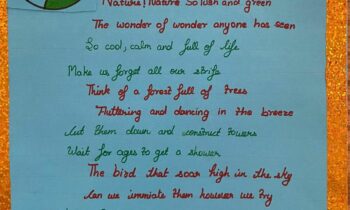 Nature! Nature So lush and green
The wonder of wonder anyone has seen
So cool, calm and full of life
Make us forget all our strife
Think of a forest full of trees
Fluttering and dancing in the breeze
Cut them down and construct towers
Wait for ages to get a shower
The bird that soar high in the sky
Can we immiate them however we try